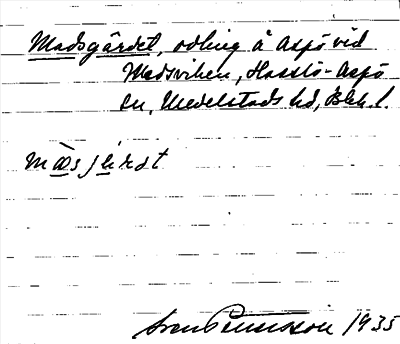 Madsgärdet, odling å Aspö vid
Madsviken, Hasslö-Aspö
sn, Medelstads hd, Blek. l.
mæsjērdt
Sven Benson 1935